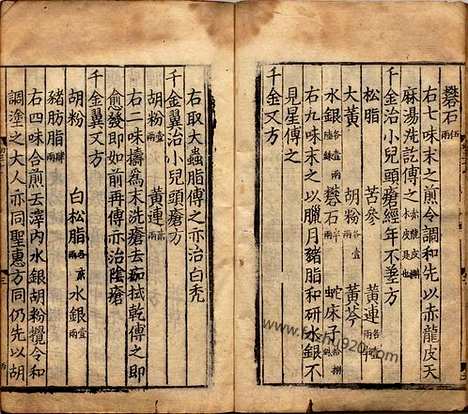 礬石伍兩
右七味末之煎令調和先以赤龍皮天
麻湯洗訖傅之
千金治小兒頭瘡經年不差方
松脂 苦參 黃連各壹兩
大黃 胡粉各壹兩 黃芩
水銀 礬石 蛇床子
右九味末之以臘月豬脂和研水銀不
見星傅之
千金又方
右取大蟲脂傅之亦治白禿
千金翼治小兒頭瘡方
胡粉壹兩 黃連貳兩
右二味擣為末洗瘡去痂拭乾傅之即
愈發即如前再傅亦治陰瘡
千金翼又方
胡粉 白松脂各貳兩 水銀壹兩
豬肪脂
右四味合煎去滓內水銀胡粉攪令和
調塗之大人亦同聖惠方同仍先以胡